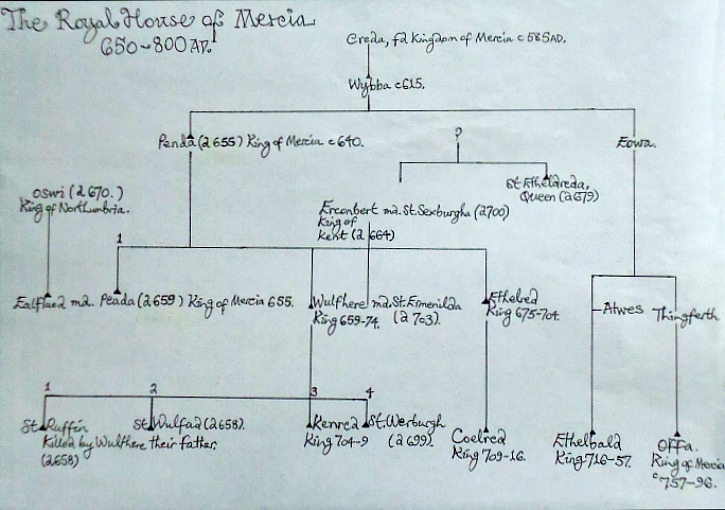 The Royal House of Mercia
650-800 AD.
Creda, fd Kingdom of Mercia c 585 AD.
Wybba c615.
Penda (d 655) King of Mercia c 640.
?
Eowa.
Oswi (d 670.)
King of Northumbria.
St Etheldreda,
Queen (d 679)
Erconbert md. St. Sexburgha (d 700)
King of
Kent (d 664)
1
Ealflaed md. Peada (d 659) King of Mercia 655.
Wulfhere md. St. Ermenilda
King 659-74. (d 703).
Ethelred
King 675-704.
Atwes
Thingferth
1
2
3
4
St Ruffin
St Wulfad (d 658).
Killed by Wulfhere their father.
(d 658)
Kenred
King 704-9
St. Werburgh
(d 699).
Coelred
King 709-16.
Ethelbald
King 716-57.
Offa.
King of Mercia
c 757-96.